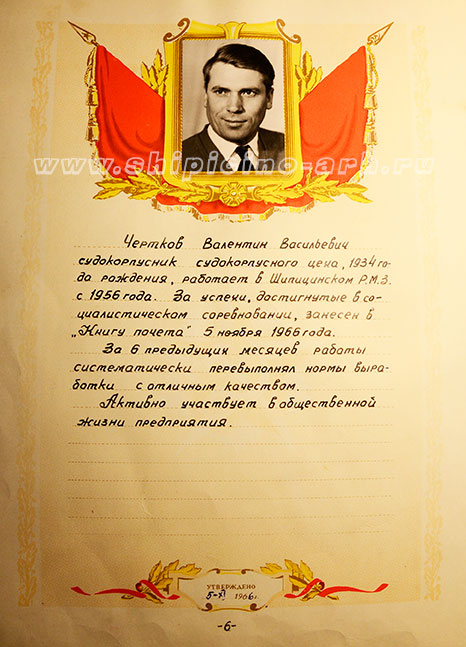 www.shipicino-arh.ru
Чертков Валентин Васильевич
судокорпусник судокорпусного цеха, 1934 го-
да рождения, работает в Шипицинском Р.М.З.
с 1956 года. За успехи, достигнутые в со-
циалистическом соревновании, занесен в
„Книгу почета" 5 ноября 1966 года.
За 6 предыдущих месяцев работы
систематически перевыполнял нормы выра-
ботки с отличным качеством.
Активно участвует в общественной
жизни предприятия.
УТВЕРЖДЕНО
5-XI 1966 г.
-6-